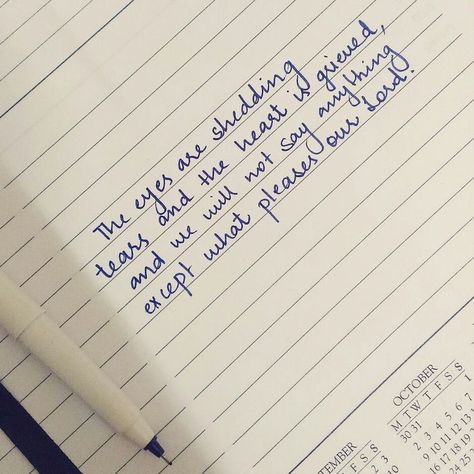 The eyes are shedding
tears and the heart is grieved,
and we will not say anything
except what pleases our Lord.
OCTOBER
M T W T F S S
30 31 1
2 3 4 5 6 7
9 10 11 12 13
16 17 18 19
TEMBER
T F S S